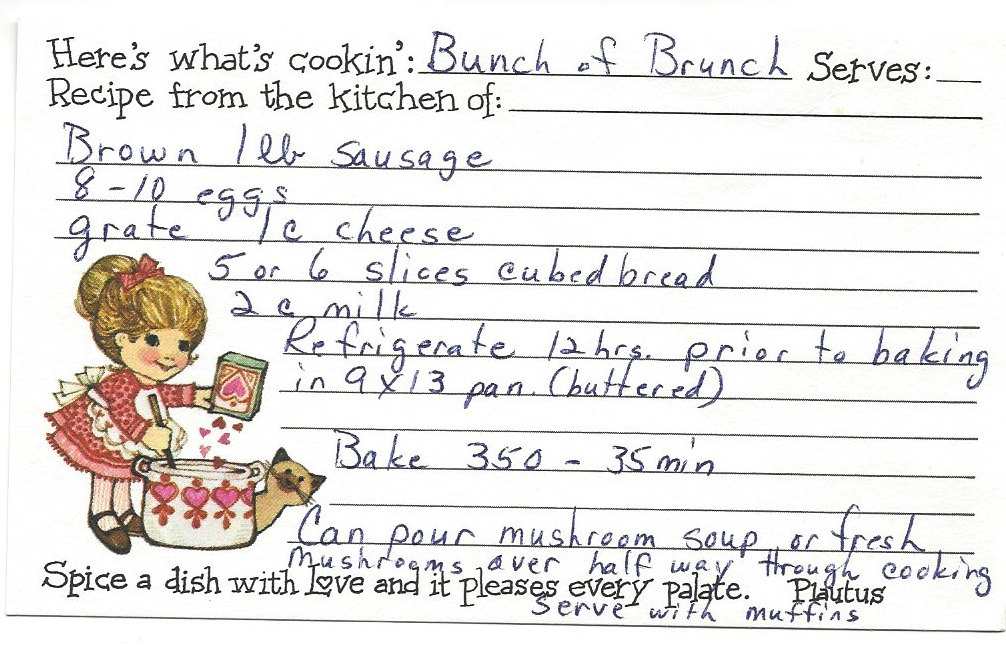 Here's what's cookin': Bunch of Brunch Serves:
Recipe from the kitchen of:
Brown 1 lb sausage
8-10 eggs
grate 1c cheese
5 or 6 slices cubed bread
2 c milk
Refrigerate 12 hrs. prior to baking
in 9x13 pan. (buttered)
Bake 350 - 35 min
Can pour mushroom soup or fresh
mushrooms over half way through cooking
Spice a dish with Love and it pleases every palate. Plautus
Serve with muffins